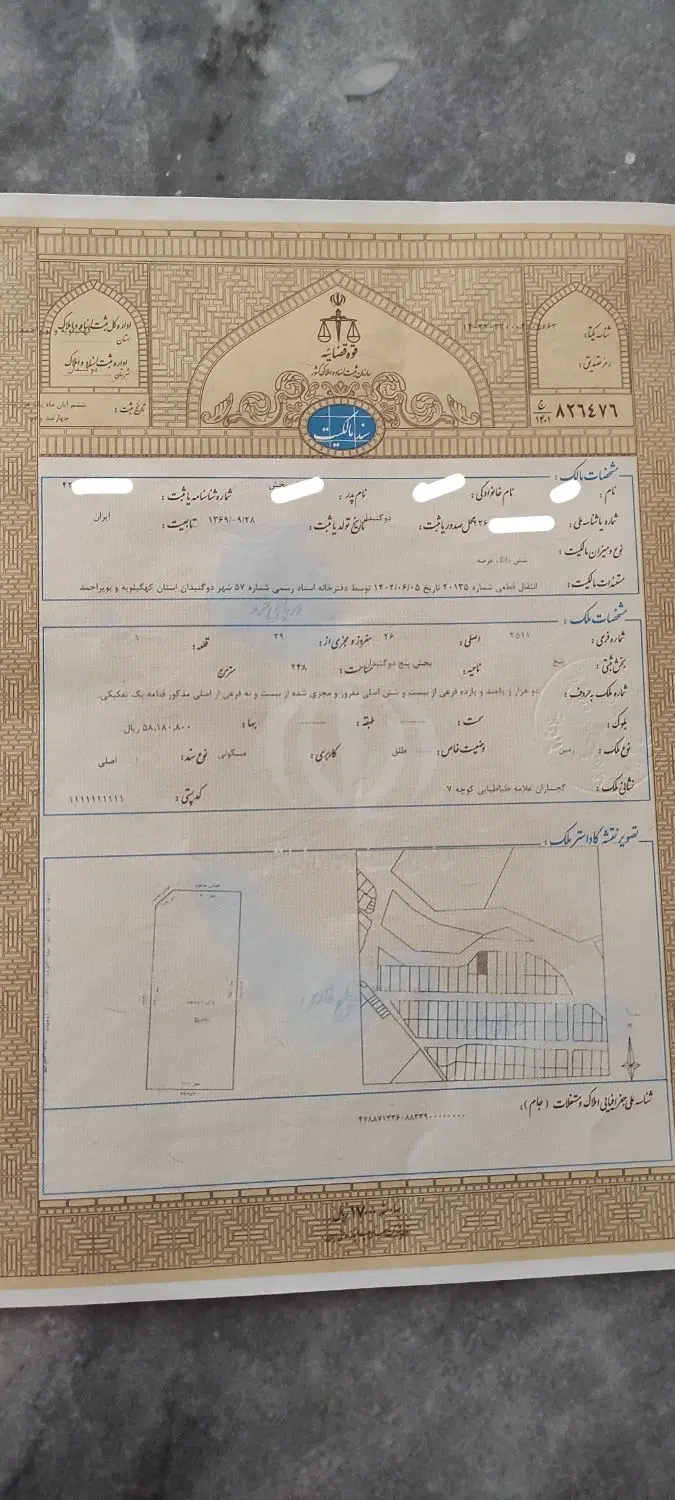 قوه قضائیه
سازمان ثبت اسناد و املاک کشور
سند مالکیت
اداره کل ثبت اسناد و املاک
استان کهگیلویه و بویراحمد
اداره ثبت اسناد و املاک
شهرستان دوگنبدان
تاریخ ثبت : ششم آبان ماه
شناسه یکتا:
رمز تصدیق:
۸۲۶۴۷۶ ج ۱۴۰۱
مشخصات مالک :
نام : نام خانوادگی : نام پدر : بخش شماره شناسنامه یا ثبت : ۴۲
شماره یا شناسه ملی : محل صدور یا ثبت : دوگنبدان تاریخ تولد یا ثبت : ۱۳۶۹/۰۹/۲۸ تابعیت : ایران
نوع و میزان مالکیت : شش دانگ عرصه
مستندات مالکیت : انتقال قطعی شماره ۲۰۱۳۵ تاریخ ۱۴۰۲/۰۶/۰۵ توسط دفترخانه اسناد رسمی شماره ۵۷ شهر دوگنبدان استان کهگیلویه و بویراحمد
مشخصات ملک :
شماره فرعی : ۲۵۱۱ اصلی : ۲۶ مفروز و مجزی از : ۲۹ قطعه : ۱
بخش ثبتی : پنج ناحیه : بخش پنج دوگنبدان مساحت : ۲۴۸ مترمربع
شماره ملک به حروف : دو هزار و پانصد و یازده فرعی از بیست و شش اصلی مفروز و مجزی شده از بیست و نه فرعی از اصلی مذکور قطعه یک تفکیکی.
بلوک : سمت : طبقه : بها : ۵۸,۱۸۰,۸۰۰ ریال
نوع ملک : زمین وضعیت خاص : طلق کاربری : مسکونی نوع سند : اصلی
نشانی ملک : گچساران علامه طباطبایی کوچه ۷ کد پستی : ۱۱۱۱۱۱۱۱۱۱
تصویر نقشه کاداستر ملک :
شناسه ملی جغرافیایی املاک و مستغلات (جام) :